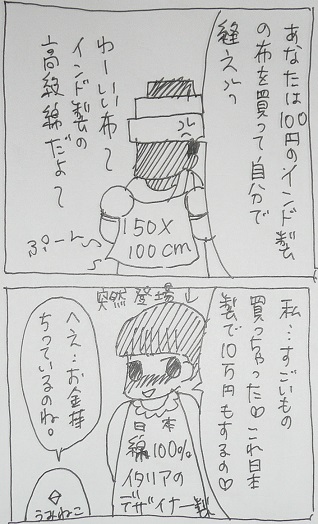 あなたは100円のインド製
の布を買って自分で
縫え
わーいい布〜
インド製の
高級綿だよ〜
150×
100cm
ぷ〜ん
突然登場↓
私…すごいもの
買っちゃった♡これ日本
製で10万円もするの♡
日本
綿100%
イタリアの
デザイナー製
へえ…お金持
ちっているのね。
うみねこ